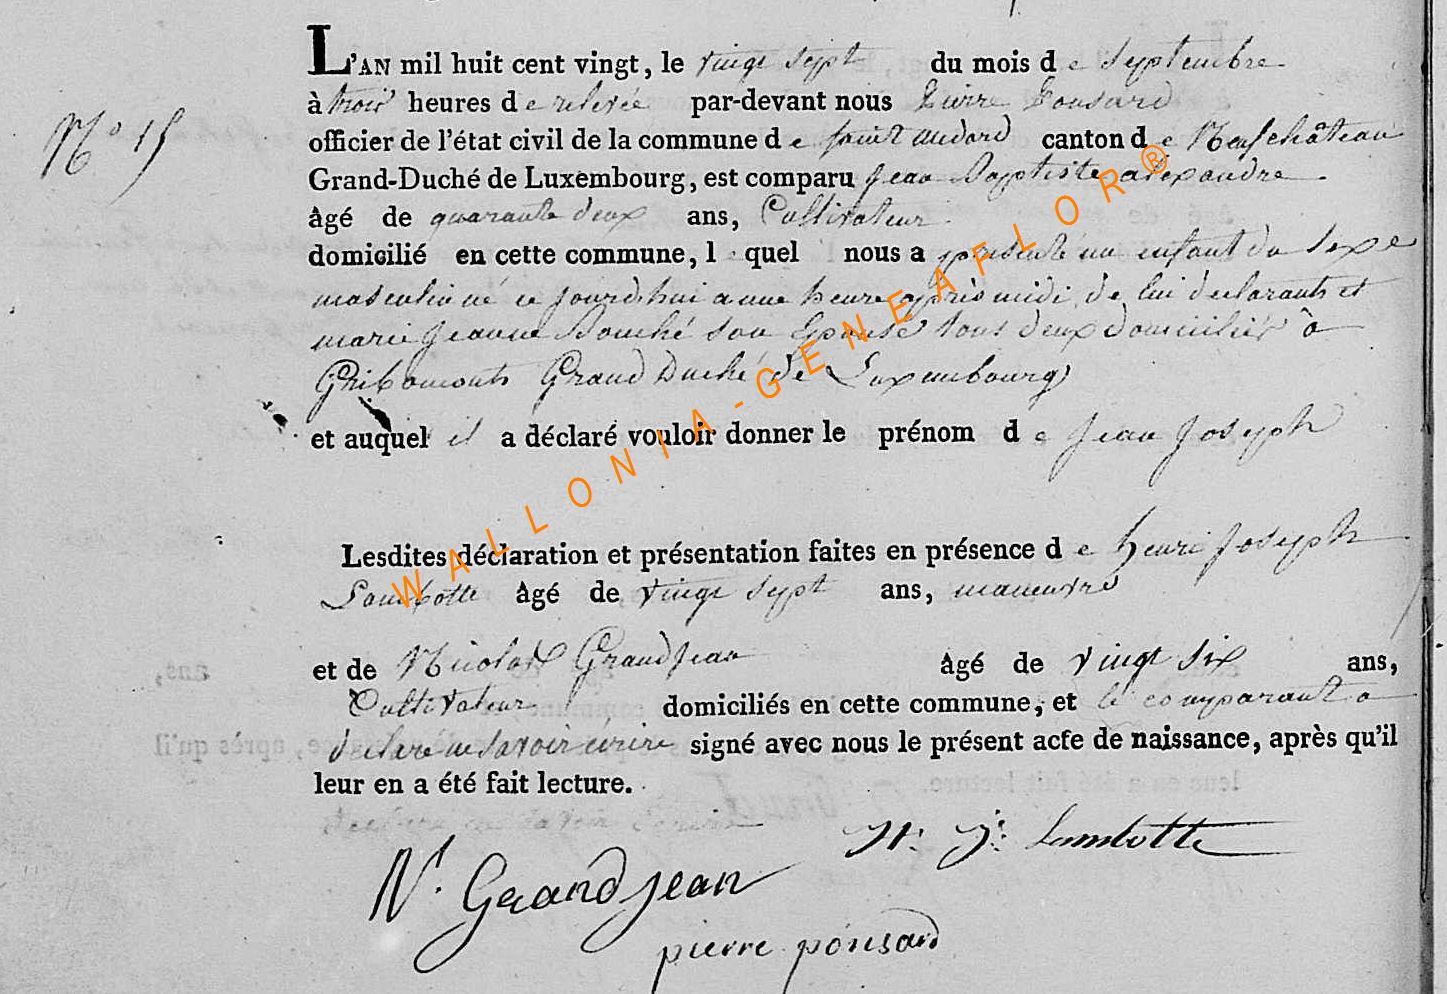 L'AN mil huit cent vingt, le vingt sept du mois de septembre
à trois heures de relevée par-devant nous Pierre Ponsard
officier de l'état civil de la commune de saint medard canton de Neufchâteau
Grand-Duché de Luxembourg, est comparu jean Baptiste alexandre
N° 15
âgé de quarante deux ans, Cultivateur
domicilié en cette commune, l e quel nous a présenté un enfant du sexe
masculin né ce jourd'hui a une heure après midi, de lui declarant et
marie jeanne Bouché son Epouse tous deux domiciliés à
Gribomont Grand Duché de Luxembourg
et auquel il a déclaré vouloir donner le prénom de jean joseph
Lesdites déclaration et présentation faites en présence de henri joseph
Lambotte âgé de vingt sept ans, maneuvre
et de Nicolas Grandjean âgé de vingt six ans,
Cultivateur domiciliés en cette commune, et le comparant a
declaré ne savoir ecrire signé avec nous le présent acte de naissance, après qu'il
leur en a été fait lecture.
H. J. Lambotte
N. Grandjean
pierre ponsard
WALLONIA-GENEAFLOR®